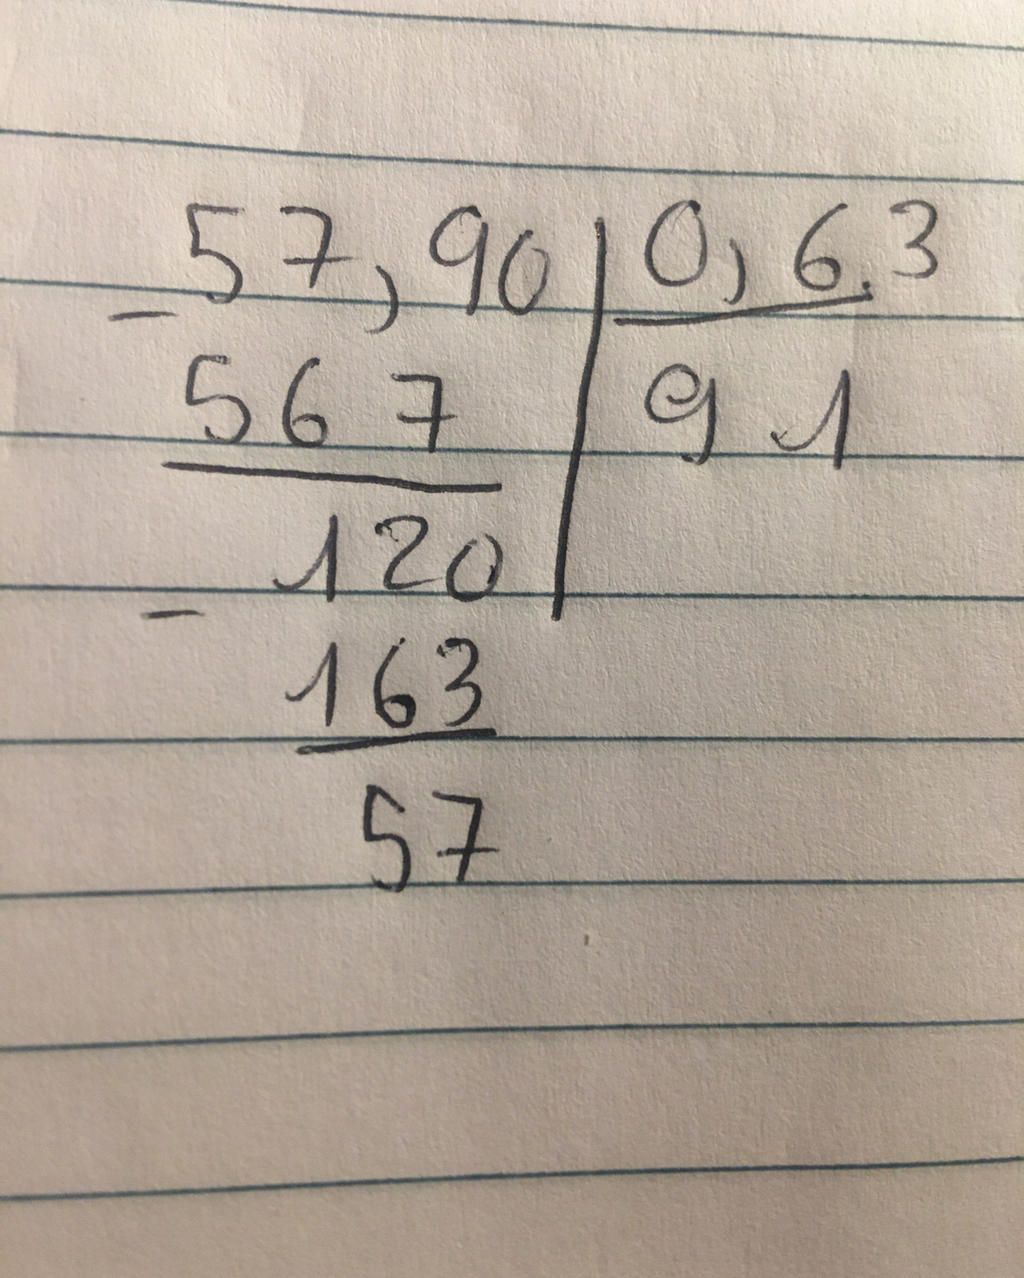 57,90 0,63
- 567 91
120
- 163
57